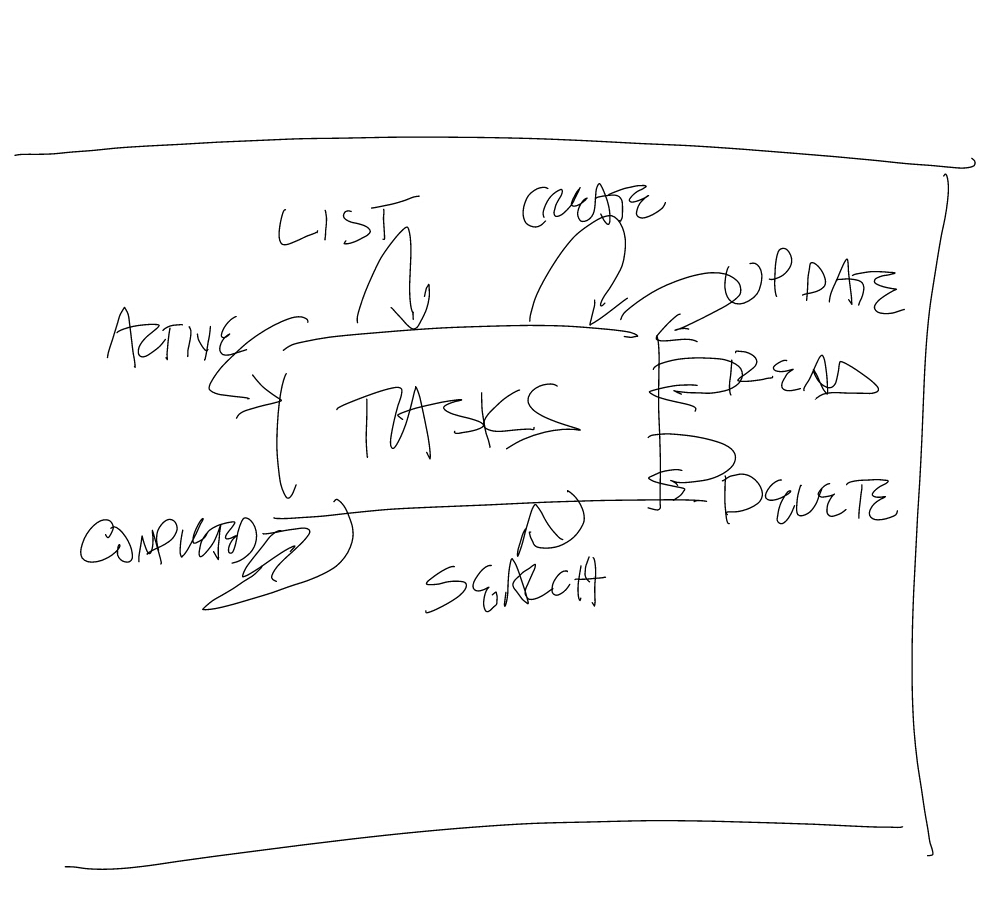 LIST
CREATE
UPDATE
ACTIVE
READ
TASKS
DELETE
COMPLETED
SEARCH